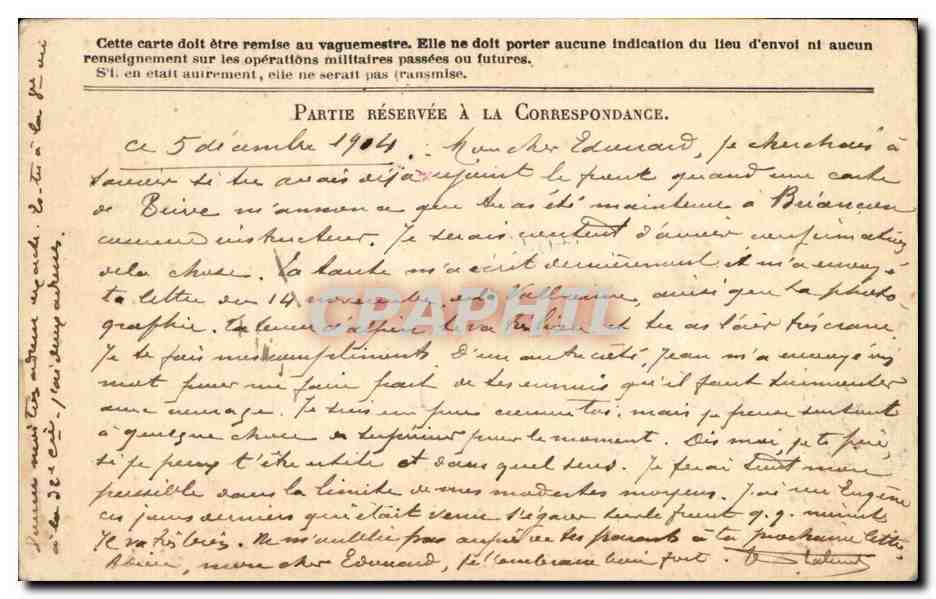 Cette carte doit être remise au vaguemestre. Elle ne doit porter aucune indication du lieu d'envoi ni aucun
renseignement sur les opérations militaires passées ou futures.
S'il en était autrement, elle ne serait pas transmise.
PARTIE RÉSERVÉE À LA CORRESPONDANCE.
ce 5 décembre 1914. Mon cher Edouard, je cherchais à
savoir si tu avais déjà rejoint le front quand une carte
de m'annonce que tu as été maintenu à Briançon
comme instructeur. Je serais content d'avoir confirmation
de la chose. Ta tante m'a écrit dernièrement et m'a envoyé
ta lettre du 14 novembre ainsi que ta photo
graphie. Ta tenue d'alpin te va très bien et tu as l'air très crane
Je te fais mes compliments. D'un autre côté, Jean m'a envoyé un
mot pour me faire part de ses ennuis qu'il faut surmonter
avec courage. Je suis un peu comme toi, mais je pense surtout
à quelque chose de supérieur pour le moment. Dis moi, je te prie,
si je peux t'être utile et dans quel sens. Je ferai tout mon
possible dans la limite de mes modestes moyens. J'ai vu Eugène
ces jours derniers qui était venu s'égarer sur le front q.q. minutes
Il va très bien. Ne m'oublie pas auprès de tes parents à ta prochaine lettre.
mon cher Edouard, je t'embrasse bien fort.
Donne moi ton adresse exacte. Es-tu à la
à la 32e Cie - j'ai deux adresses.
CPAPHIL